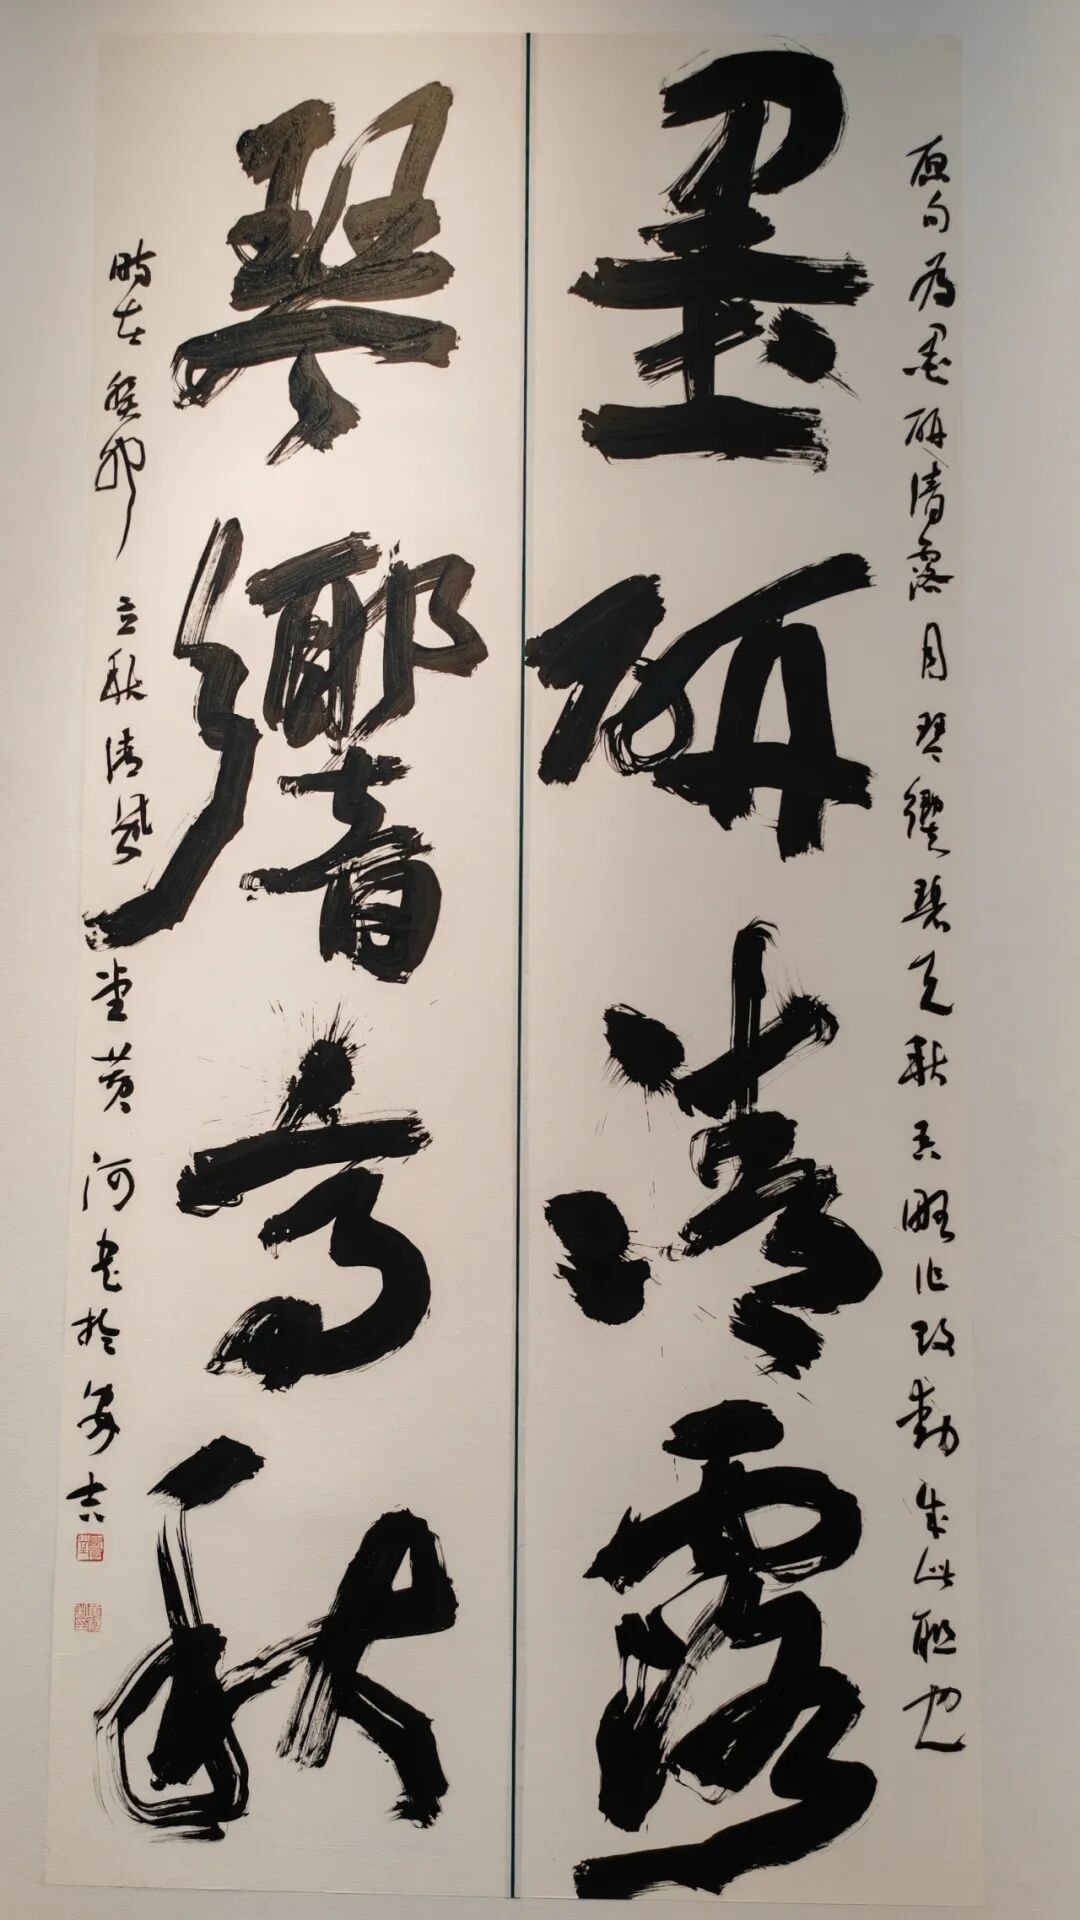 原句為墨研清露月琴響碧天秋吾略作改動成此聯也
墨研清露
琴響高秋
時在癸卯立秋清風堂黄河書於安吉